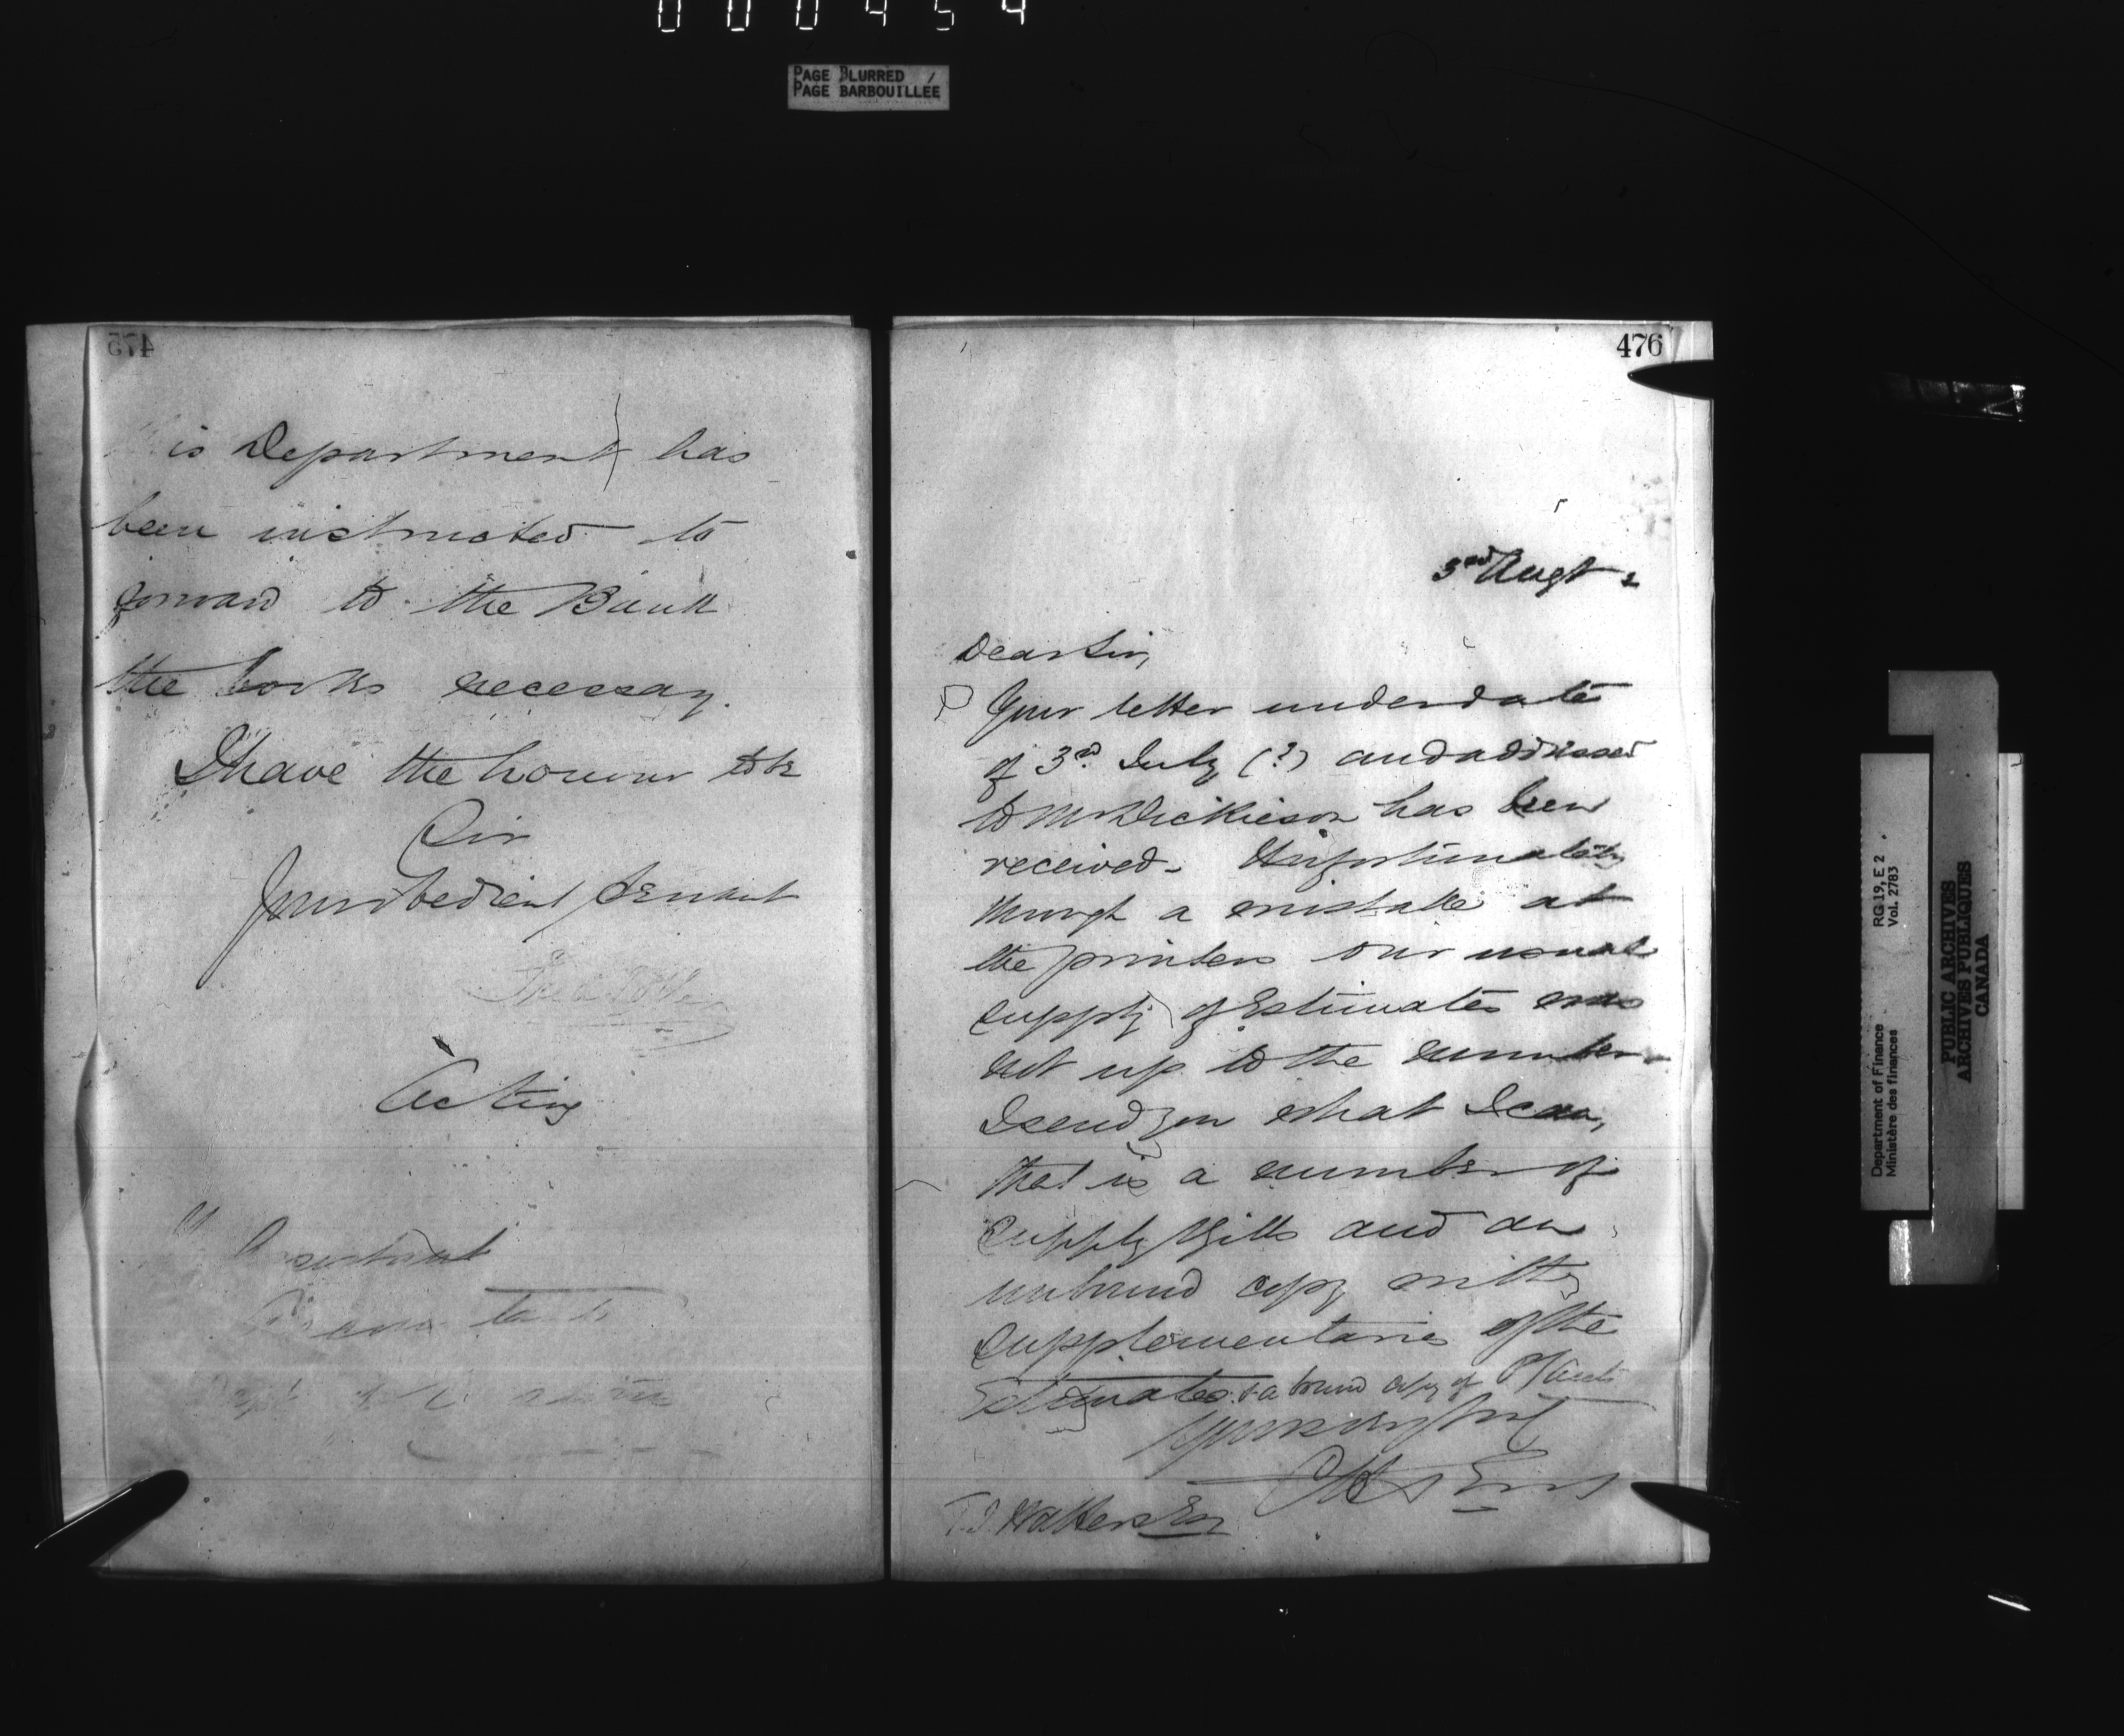 000454
PAGE BLURRED
PAGE BARBOUILLÉE
475
is Department has
been instructed to
forward to the Bank
the books necessary.
I have the honour to be
Sir
Your obedient Servant
Acting
Assistant
476
3rd Augt
Dear Sir,
Your letter under date
of 3rd July (?) and addressed
to Mr Dickieson has been
received. Unfortunately
through a mistake at
the printers our usual
supply of Estimates was
not up to the number.
I send you what I can,
that is a number of
Supply Bills and an
unbound copy with
Supplementaries of the
Estimates & a bound copy of
Yours very truly
T.D. Walters Esq
Department of Finance
Ministère des finances
RG 19, E 2
Vol. 2783
PUBLIC ARCHIVES
ARCHIVES PUBLIQUES
CANADA